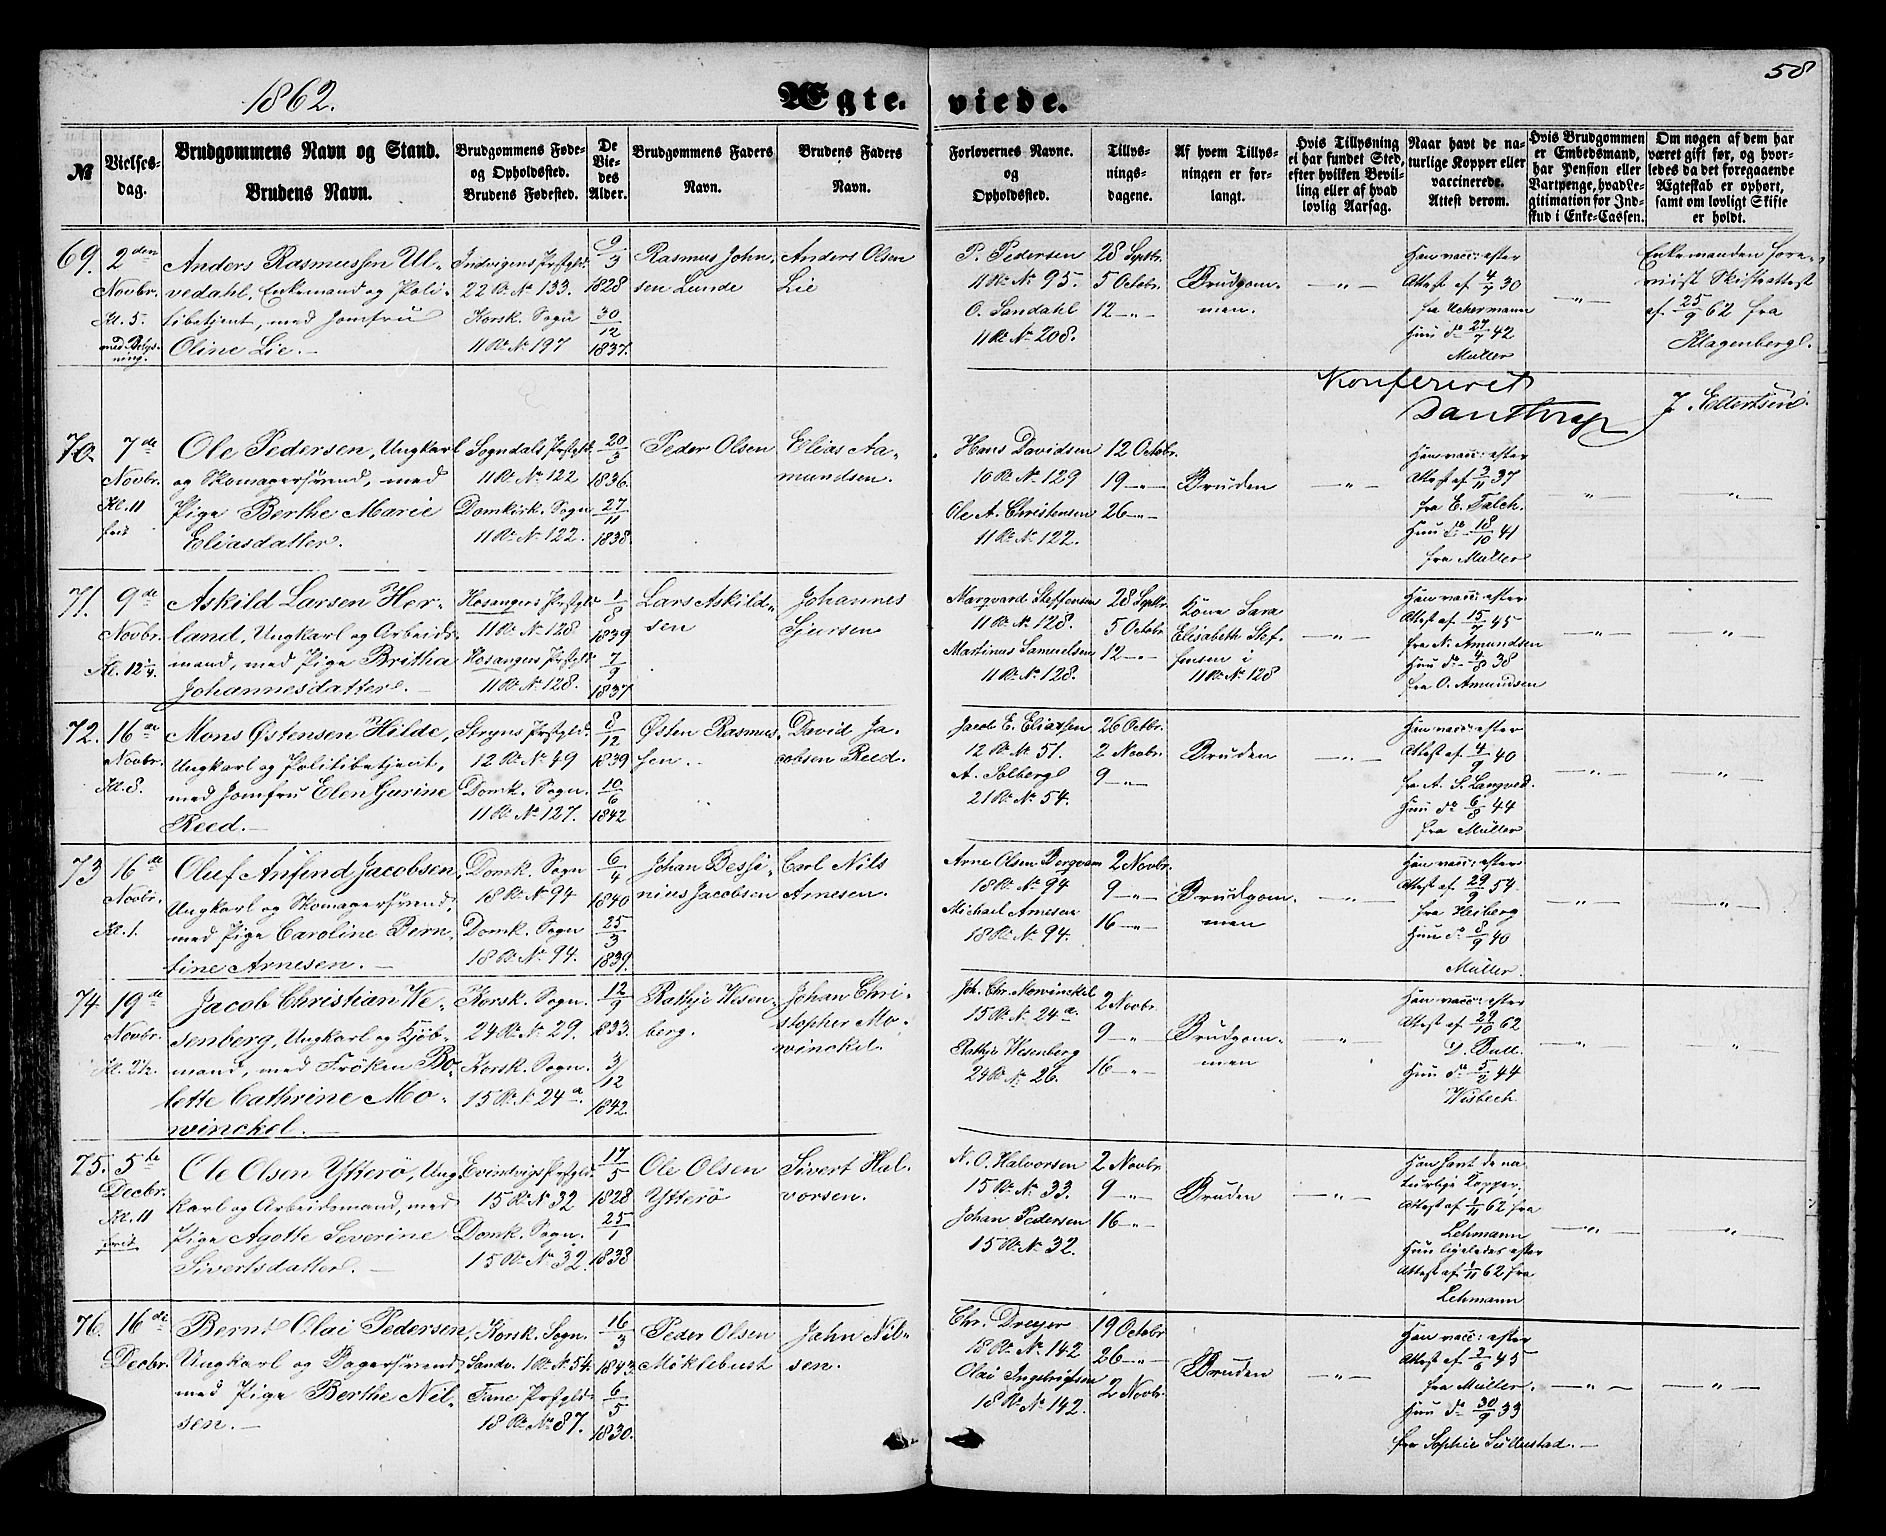 1862.
Ægte-
viede.
58
№
Vielses-
dag.
Brudgommens Navn og Stand.
Brudens Navn.
Brudgommens Føde-
og Opholdssted.
Brudens Fødested.
De
Vie-
des
Alder.
Brudgommens Faders
Navn.
Brudens Faders
Navn.
Forlovernes Navne.
og
Opholdssted.
Tillys-
nings-
dagene.
Af hvem Tillys-
ningen er for-
langt.
Hvis Tillysning
ei har fundet Sted,
efter hvilken Bevil-
ling eller af hvad
lovlig Aarsag.
Naar havt de na-
turlige Kopper eller
vaccinerede.
Attest derom.
Hvis Brudgommen
er Embedsmand,
har Pension eller
Vartpenge, hvad Le-
gitimation for Ind-
skud i Enke-Cassen.
Om nogen af dem har
været gift før, og hvor-
ledes da det foregaaende
Ægteskab er ophørt,
samt om lovligt Skifte
er holdt.
69.
2den
Novbr.
Kl. 5.
med Belys-
ning.
Anders Rasmussen Ul-
vedahl, Enkemand og Poli-
tibetjent, med Jomfru
Oline Lie.
Indvigens Prstgld.
22 R. No 133.
Korsk. Sogn
11 R. No 197
9/3
1828
30/12
1837.
Rasmus John-
sen Lunde
Anders Olsen
Lie
P. Pedersen
11 R. No 95.
O. Sandahl
11 R. No 208.
28 Septbr.
5 Octobr.
12 — " —
Brudgom-
men.
— " —
Han vacc: efter
Attest af 4/7 30
fra Uchermann
Hun do 27/7 42
Müller
— " —
Enkemanden fore-
viist Skifteattest
af 25/9 62 fra
Klagenberg.
Konfereret
J. Ellertsen
70.
7de
Novbr.
Kl. 11
frit
Ole Pedersen, Ungkarl
og Skomagersvend, med
Pige Berthe Marie
Eliasdatter.
Sogndals Prstgld.
11 R. No 122
Domkirk. Sogn
11 R. No 122.
20/3
1836.
27/11
1838.
Peder Olsen
Elias Aa-
mundsen.
Hans Davidsen
10 R. No 129
Ole A. Christensen
11 R. No 122.
12 Octobr.
19 — " —
26 — " —
Bruden
— " —
Han vacc: efter
Attest af 3/11 37
fra E. Falch.
Hun do 18/10 41
fra Müller
— " —
— " —
71.
9de
Novbr.
Kl. 12 1/4.
Askild Larsen Her-
land, Ungkarl og Arbeids-
mand, med Pige Britha
Johannesdatter.
Hosangers Prstgld
11 R. No 128
Hosangers Prstgld
11 R. No 128.
1/8
1839
7/9
1837
Lars Askild-
sen
Johannes
Sjursen
Marqvard Steffensen
11 R. No 128.
Martinus Samuelsen
11 R. No 128.
28 Septbr.
5 Octobr
12 — " —
Kone Sara
Elisabeth Stef-
fensen i
11 R. No 128
— " —
Han vacc: efter
Attest af 15/7 45
fra N. Amundsen
Hun do 4/8 38
fra O. Amundsen
— " —
— " —
72.
16de
Novbr.
Kl. 8.
Mons Østensen Hilde,
Ungkarl og Politibetjent,
med Jomfru Elen Gurine
Reed.
Stryns Prstgld.
12 R. No 49
Domk. Sogn.
11 R. No 127.
8/12
1839
10/6
1842
Østen Rasmus-
sen.
David Ja-
cobsen Reed.
Jacob E. Eliassen
12 R. No 51.
A. Solberg
21 R. No 54.
26 Octbr.
2 Novbr.
9 — " —
Bruden
— " —
Han vacc: efter
Attest af 4/9 40
fra A. S. Langved.
Hun do 6/8 44
fra Müller
— " —
— " —
73
16de
Novbr.
Kl. 1.
Oluf Anfind Jacobsen,
Ungkarl og Skomagersvend,
med Pige Caroline Bern-
tine Arnesen.
Domk. Sogn
18 R. No 94
Domk. Sogn
18 R. No 94.
6/4
1840
25/3
1839.
Johan Dessi-
nius Jacobsen
Carl Nils
Arnesen.
Arne Olsen Bergvam
18 R. No 94
Michael Arnesen
18 R. No 94.
2 Novbr.
9 — " —
16 — " —
Brudgom-
men
— " —
Han vacc: efter
Attest af 29/9 54
fra Heiberg
Hun do 8/9 40
Müller.
— " —
— " —
74
19de
Novbr.
Kl. 2 1/2.
Jacob Christian We-
senberg, Ungkarl og Kjøb-
mand, med Frøken Bo-
lette Cathrine Mo-
winckel.
Korsk. Sogn.
24 R. No 29.
Korsk. Sogn.
15 R. No 24 a.
12/9
1833.
3/12
1842.
Rathje Wesen-
berg.
Johan Chri-
stopher Mo-
winckel.
Joh. Chr. Mowinckel
15 R. No 24 a.
Rathje Wesenberg
24 R. No 26.
2 Novbr
9 — " —
16 — " —
Brudgom-
men
— " —
Han vacc: efter
Attest af 29/10 62
D. Bull.
Hun do 5/2 44
Wisbech.
— " —
— " —
75.
5te
Decbr.
Kl. 11
frit
Ole Olsen Ytterø, Ung-
karl og Arbeidsmand, med
Pige Agotte Severine
Sivertsdatter.
Evindvigs Prstgld.
15 R. No 32
Domk. Sogn.
15 R. No 32.
17/5
1828
25/1
1838
Ole Olsen
Ytterø
Sivert Hal-
vorsen.
N. O. Halvorsen
15 R. No 33.
Johan Pedersen
15 R. No 32.
2 Novbr
9 — " —
16 — " —
Bruden
— " —
Han havt de na-
turlige Kopper,
Attest af 1/11 62 fra
Lehmann
Hun ligeledes efter
Attest af 1/11 62 fra
Lehmann
— " —
— " —
76.
16de
Decbr.
Bernt Olai Pedersen,
Ungkarl og Bagersvend,
med Pige Berthe Nil-
sen.
Korsk. Sogn.
Sandv. 1 R. No 54.
Fane Prstgld.
18 R. No 87.
16/3
1843
6/5
1830.
Peder Olsen
Miklebust
Jahn Nil-
sen.
Chr. Dreyer
18 R. No 142
Olai Ingebrigtsen
18 R. No 142.
19 Octobr
26 — " —
2 Novbr.
Bruden
— " —
Han vacc: efter
Attest af 2/6 45
fra Müller.
Hun do 30/9 33
fra Sophie Sullustad.
— " —
— " —